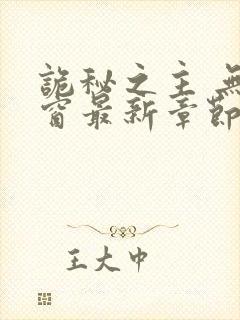 詭秘之主 無
窗最新章節
王大中